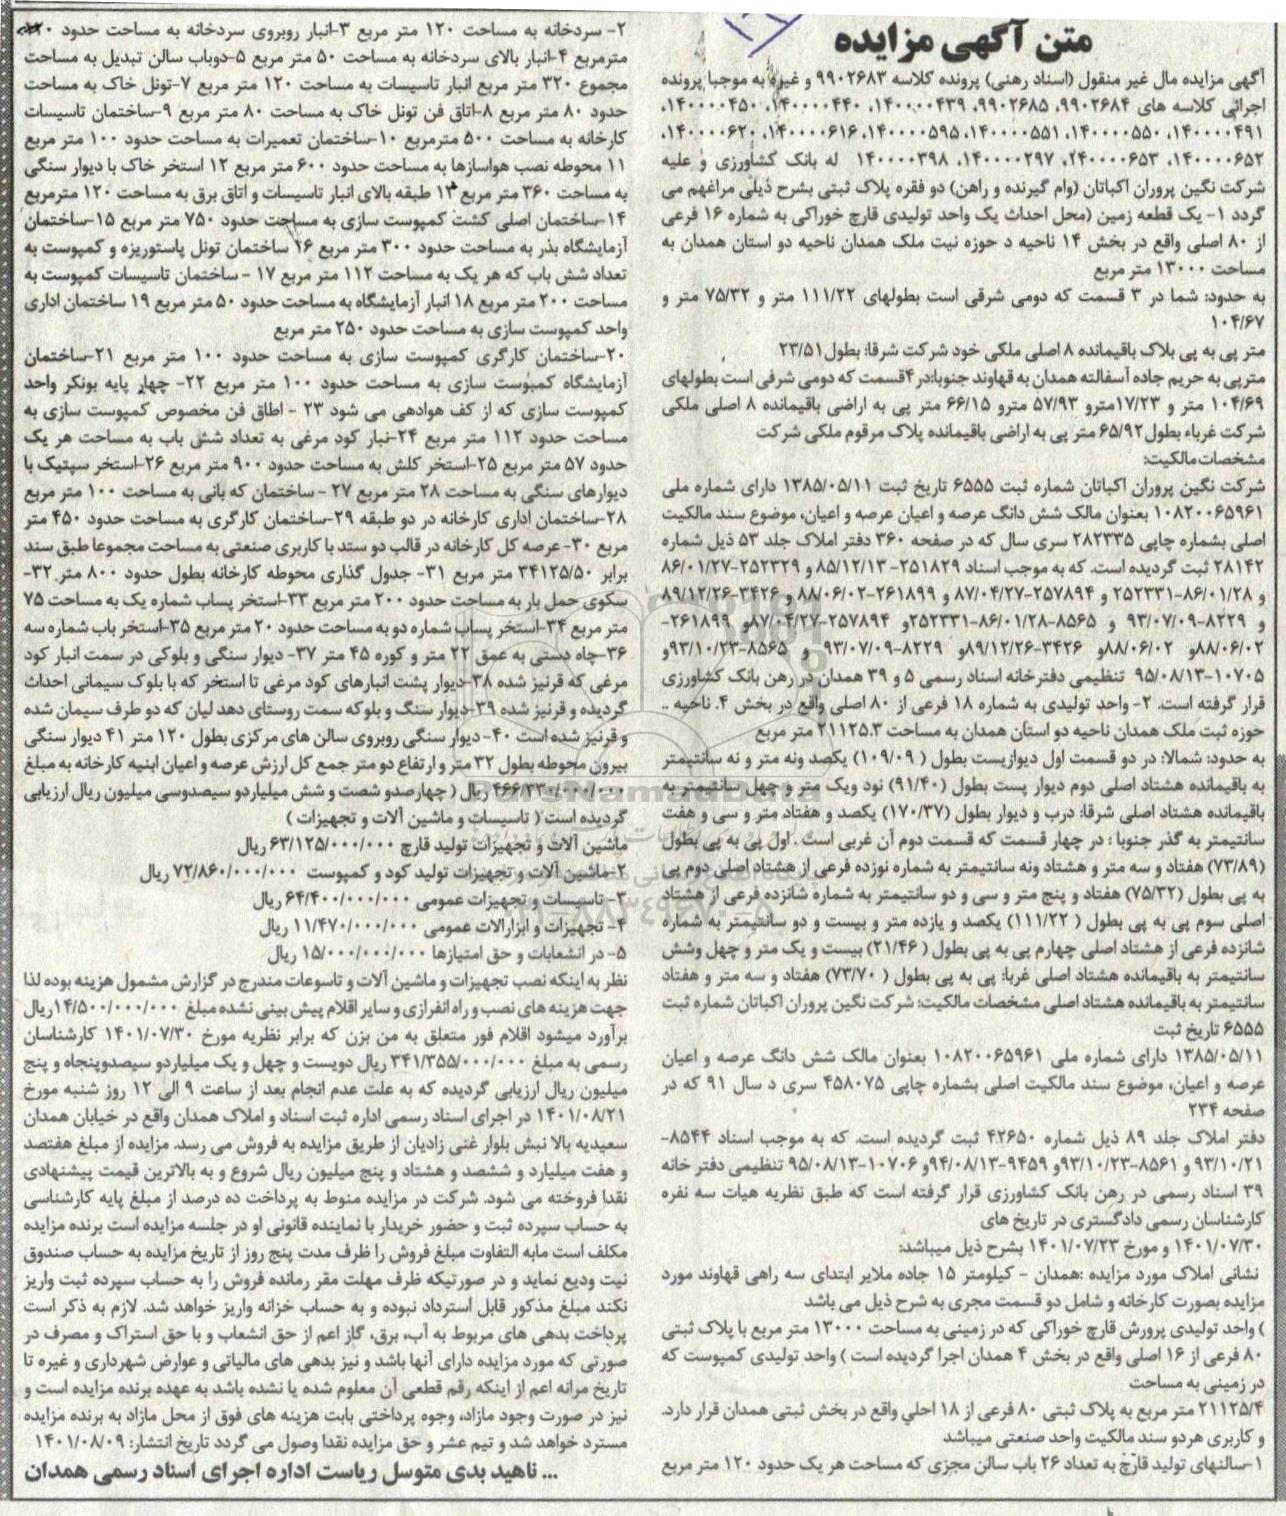 متن آگهی مزایده
آگهی مزایده مال غیر منقول (اسناد رهنی) پرونده کلاسه ۹۹۰۲۶۸۳ و غیره به موجبا پرونده
اجرائی کلاسه های ۹۹۰۲۶۸۴، ۹۹۰۲۶۸۵، ۱۴۰۰۰۰۴۳۹، ۱۴۰۰۰۰۴۴۰، ۱۴۰۰۰۰۴۵۰،
۱۴۰۰۰۰۴۹۱، ۱۴۰۰۰۰۵۵۰، ۱۴۰۰۰۰۵۵۱، ۱۴۰۰۰۰۵۹۵، ۱۴۰۰۰۰۶۱۶، ۱۴۰۰۰۰۶۲۰،
۱۴۰۰۰۰۶۵۲، ۲۴۰۰۰۰۶۵۳، ۱۴۰۰۰۰۲۹۷، ۱۴۰۰۰۰۳۹۸ له بانک کشاورزی و علیه
شرکت نگین پروران اکباتان (وام گیرنده و راهن) دو فقره پلاک ثبتی بشرح ذیلی مراغهم می
گردد ۱- یک قطعه زمین (محل احداث یک واحد تولیدی قارچ خوراکی به شماره ۱۶ فرعی
از ۸۰ اصلی واقع در بخش ۱۴ ناحیه د حوزه نیت ملک همدان ناحیه دو استان همدان به
مساحت ۱۳۰۰۰ متر مربع
به حدود: شما در ۳ قسمت که دومی شرقی است بطولهای ۱۱۱/۲۲ متر و ۷۵/۳۲ متر و
۱۰۴/۶۷
متر پی به پی بلاک باقیمانده ۸ اصلی ملکی خود شرکت شرقا: بطول۲۳/۵۱
مترپی به حریم جاده آسفالته همدان به قهاوند جنوبا:در ۴قسمت که دومی شرفی است بطولهای
۱۰۴/۶۹ متر و ۱۷/۲۳مترو ۵۷/۹۳ مترو ۶۶/۱۵ متر پی به اراضی باقیمانده ۸ اصلی ملکی
شرکت غرباء بطول۶۵/۹۲ متر پی به اراضی باقیمانده پلاک مرقوم ملکی شرکت
مشخصات مالکیت:
شرکت نگین پروران اکباتان شماره ثبت ۶۵۵۵ تاریخ ثبت ۱۳۸۵/۰۵/۱۱ دارای شماره ملی
۱۰۸۲۰۰۶۵۹۶۱ بعنوان مالک شش دانگ عرصه و اعیان عرصه و اعیان، موضوع سند مالکیت
اصلی بشماره چاپی ۲۸۲۳۳۵ سری سال که در صفحه ۳۶۰ دفتر املاک جلد ۵۳ ذیل شماره
۲۸۱۴۲ ثبت گردیده است. که به موجب اسناد ۲۵۱۸۲۹- ۸۵/۱۲/۱۳ و ۲۵۲۳۲۹-۸۶/۰۱/۲۷
و ۸۶/۰۱/۲۸-۲۵۲۳۳۱ و ۲۵۷۸۹۴-۸۷/۰۴/۲۷ و ۲۶۱۸۹۹-۸۸/۰۶/۰۲ و ۳۴۲۶-۸۹/۱۲/۲۶
و ۸۲۲۹-۹۳/۰۷/۰۹ و ۸۵۶۵-۸۶/۰۱/۲۸-۲۵۲۳۳۱و ۲۵۷۸۹۴-۸۷/۰۴/۲۷و ۲۶۱۸۹۹-
۸۸/۰۶/۰۲و ۸۸/۰۶/۰۲و ۳۴۲۶-۸۹/۱۲/۲۶و ۸۲۲۹-۹۳/۰۷/۰۹ و ۸۵۶۵-۹۳/۱۰/۲۳و
۱۰۷۰۵-۹۵/۰۸/۱۳ تنظیمی دفترخانه اسناد رسمی ۵ و ۳۹ همدان در رهن بانک کشاورزی
قرار گرفته است. ۲- واحد تولیدی به شماره ۱۸ فرعی از ۸۰ اصلی واقع در بخش ۴. ناحیه ..
حوزه ثبت ملک همدان ناحیه دو استان همدان به مساحت ۲۱۱۲۵.۳ متر مربع
به حدود: شمالا: در دو قسمت اول دیوازیست بطول ( ۱۰۹/۰۹) یکصد ونه متر و نه سانتیمتر
به باقیمانده هشتاد اصلی دوم دیوار پست بطول (۹۱/۴۰) نود ویک متر و چهل سانتیمتر به
باقیمانده هشتاد اصلی شرقا: درب و دیوار بطول (۱۷۰/۳۷) یکصد و هفتاد متر و سی و هفت
سانتیمتر به گذر جنوبا : در چهار قسمت که قسمت دوم آن غربی است . اول پی به پی بطول
(۷۳/۸۹) هفتاد و سه متر و هشتاد ونه سانتیمتر به شماره نوزده فرعی از هشتاد اصلی دوم پی
به پی بطول (۷۵/۳۲) هفتاد و پنج متر و سی و دو سانتیمتر به شماره شانزده فرعی از هشتاد
اصلی سوم پی به پی بطول ( ۱۱۱/۲۲) یکصد و یازده متر و بیست و دو سانتیمتر به شماره
شانزده فرعی از هشتاد اصلی چهارم پی به پی بطول ( ۲۱/۴۶) بیست و یک متر و چهل وشش
سانتیمتر به باقیمانده هشتاد اصلی غربا: پی به پی بطول ( ۷۳/۷۰) هفتاد و سه متر و هفتاد
سانتیمتر به باقیمانده هشتاد اصلی مشخصات مالکیت: شرکت نگین پروران اکباتان شماره ثبت
۶۵۵۵ تاریخ ثبت
۱۳۸۵/۰۵/۱۱ دارای شماره ملی ۱۰۸۲۰۰۶۵۹۶۱ بعنوان مالک شش دانگ عرصه و اعیان
عرصه و اعیان، موضوع سند مالکیت اصلی بشماره چاپی ۴۵۸۰۷۵ سری د سال ۹۱ که در
صفحه ۲۳۴
دفتر املاک جلد ۸۹ ذیل شماره ۴۲۶۵۰ ثبت گردیده است. که به موجب اسناد ۸۵۴۴-
۹۳/۱۰/۲۱ و ۸۵۶۱-۹۳/۱۰/۲۳و ۹۴۵۹-۹۴/۰۸/۱۳و ۱۰۷۰۶-۹۵/۰۸/۱۳ تنظیمی دفتر خانه
۳۹ اسناد رسمی در رهن بانک کشاورزی قرار گرفته است که طبق نظریه هیات سه نفره
کارشناسان رسمی دادگستری در تاریخ های
۱۴۰۱/۰۷/۳۰ و مورخ ۱۴۰۱/۰۷/۲۳ بشرح ذیل میباشد:
نشانی املاک مورد مزایده :همدان - کیلومتر ۱۵ جاده ملایر ابتدای سه راهی قهاوند مورد
مزایده بصورت کارخانه و شامل دو قسمت مجری به شرح ذیل می باشد
) واحد تولیدی پرورش قارچ خوراکی که در زمینی به مساحت ۱۳۰۰۰ متر مربع با پلاک ثبتی
۸۰ فرعی از ۱۶ اصلی واقع در بخش ۴ همدان اجرا گردیده است ) واحد تولیدی کمپوست که
در زمینی به مساحت
۲۱۱۲۵/۴ متر مربع به پلاک ثبتی ۸۰ فرعی از ۱۸ احلي واقع در بخش ثبتی همدان قرار دارد.
و کاربری هردو سند مالکیت واحد صنعتی میباشد
۱-سالنهای تولید قارچ به تعداد ۲۶ باب سالن مجزی که مساحت هر یک حدود ۱۲۰ متر مربع
۲- سردخانه به مساحت ۱۲۰ متر مربع ۳-انبار روبروی سردخانه به مساحت حدود ۲۲۰
مترمربع ۴-انبار بالای سردخانه به مساحت ۵۰ متر مربع ۵-دوباب سالن تبدیل به مساحت
مجموع ۳۲۰ متر مربع انبار تاسیسات به مساحت ۱۲۰ متر مربع ۷-تونل خاک به مساحت
حدود ۸۰ متر مربع ۸-اتاق فن تونل خاک به مساحت ۸۰ متر مربع ۹-ساختمان تاسیسات
کارخانه به مساحت ۵۰۰ مترمربع ۱۰-ساختمان تعمیرات به مساحت حدود ۱۰۰ متر مربع
۱۱ محوطه نصب هواسازها به مساحت حدود ۶۰۰ متر مربع ۱۲ استخر خاک با دیوار سنگی
به مساحت ۳۶۰ متر مربع ۱۳ طبقه بالای انبار تاسیسات و اتاق برق به مساحت ۱۲۰ مترمربع
۱۴-ساختمان اصلی کشت کمپوست سازی به مساحت حدود ۷۵۰ متر مربع ۱۵-ساختمان
آزمایشگاه بذر به مساحت حدود ۳۰۰ متر مربع ۱۶ ساختمان تونل پاستوریزه و کمپوست به
تعداد شش باب که هر یک به مساحت ۱۱۲ متر مربع ۱۷ - ساختمان تاسیسات کمپوست به
مساحت ۲۰۰ متر مربع ۱۸ انبار آزمایشگاه به مساحت حدود ۵۰ متر مربع ۱۹ ساختمان اداری
واحد کمپوست سازی به مساحت حدود ۲۵۰ متر مربع
۲۰-ساختمان کارگری کمپوست سازی به مساحت حدود ۱۰۰ متر مربع ۲۱-ساختمان
آزمایشگاه کمپوست سازی به مساحت حدود ۱۰۰ متر مربع ۲۲- چهار پایه بونکر واحد
کمپوست سازی که از کف هوادهی می شود ۲۳ - اطاق فن مخصوص کمپوست سازی به
مساحت حدود ۱۱۲ متر مربع ۲۴-نبار کود مرغی به تعداد شش باب به مساحت هر یک
حدود ۵۷ متر مربع ۲۵-استخر کلش به مساحت حدود ۹۰۰ متر مربع ۲۶-استخر سپتیک با
دیوارهای سنگی به مساحت ۲۸ متر مربع ۲۷ - ساختمان که بانی به مساحت ۱۰۰ متر مربع
۲۸-ساختمان اداری کارخانه در دو طبقه ۲۹-ساختمان کارگری به مساحت حدود ۴۵۰ متر
مربع ۳۰-عرصه کل کارخانه در قالب دو سند با کاربری صنعتی به مساحت مجموعا طبق سند
برابر ۳۴۱۲۵/۵۰ متر مربع ۳۱- جدول گذاری محوطه کارخانه بطول حدود ۸۰۰ متر ۳۲-
سکوی حمل بار به مساحت حدود ۲۰۰ متر مربع ۳۳-استخر پساب شماره یک به مساحت ۷۵
متر مربع ۳۴-استخر پساب شماره دو به مساحت حدود ۲۰ متر مربع ۳۵-استخر باب شماره سه
۳۶-چاه دستی به عمق ۲۲ متر و کوره ۴۵ متر ۳۷- دیوار سنگی و بلوکی در سمت انبار کود
مرغی که قرنیز شده ۳۸-دیوار پشت انبارهای کود مرغی تا استخر که با بلوک سیمانی احداث
گردیده و قرنیز شده ۳۹-دیوار سنگ و بلوکه سمت روستای دهد لیان که دو طرف سیمان شده
و قرنیز شده است ۴۰- دیوار سنگی روبروی سالن های مرکزی بطول ۱۲۰ متر ۴۱ دیوار سنگی
بیرون محوطه بطول ۳۲ متر و ارتفاع دو متر جمع کل ارزش عرصه و اعیان ابنیه کارخانه به مبلغ
۴۶۶/۳۳۰/۰۰۰/۰۰۰ ریال ( چهارصدو شصت و شش میلیاردو سیصدوسی میلیون ریال ارزیابی
گردیده است ( تاسیسات و ماشین آلات و تجهیزات )
ماشین آلات و تجهیزات تولید قارچ ۶۳/۱۲۵/۰۰۰/۰۰۰ ریال
۲-ماشین آلات و تجهیزات تولید کود و کمپوست ۷۲/۸۶۰/۰۰۰/۰۰۰ ریال
۳- تاسیسات و تجهیزات عمومی ۶۴/۴۰۰/۰۰۰/۰۰۰ ریال
۴- تجهیزات و ابزارالات عمومی ۱۱/۴۷۰/۰۰۰/۰۰۰ ریال
۵- در انشعابات و حق امتیازها ۱۵/۰۰۰/۰۰۰/۰۰۰ ریال
نظر به اینکه نصب تجهیزات و ماشین آلات و تاسوعات مندرج در گزارش مشمول هزینه بوده لذا
جهت هزینه های نصب و راه انفرازی و سایر اقلام پیش بینی نشده مبلغ ۱۴/۵۰۰/۰۰۰/۰۰۰ریال
برآورد میشود اقلام فور متعلق به من بزن که برابر نظریه مورخ ۱۴۰۱/۰۷/۳۰ کارشناسان
رسمی به مبلغ ۳۴۱/۳۵۵/۰۰۰/۰۰۰ ریال دویست و چهل و یک میلیاردو سیصدوپنجاه و پنج
میلیون ریال ارزیابی گردیده که به علت عدم انجام بعد از ساعت ۹ الی ۱۲ روز شنبه مورخ
۱۴۰۱/۰۸/۲۱ در اجرای اسناد رسمی اداره ثبت اسناد و املاک همدان واقع در خیابان همدان
سعیدیه بالا نبش بلوار غنی زادیان از طریق مزایده به فروش می رسد. مزایده از مبلغ هفتصد
و هفت میلیارد و ششصد و هشتاد و پنج میلیون ریال شروع و به بالاترین قیمت پیشنهادی
نقدا فروخته می شود. شرکت در مزایده منوط به پرداخت ده درصد از مبلغ پایه کارشناسی
به حساب سپرده ثبت و حضور خریدار با نماینده قانونی او در جلسه مزایده است برنده مزایده
مکلف است مابه التفاوت مبلغ فروش را ظرف مدت پنج روز از تاریخ مزایده به حساب صندوق
نیت ودیع نماید و در صورتیکه ظرف مهلت مقر رمانده فروش را به حساب سپرده ثبت واریز
نکند مبلغ مذکور قابل استرداد نبوده و به حساب خزانه واریز خواهد شد. لازم به ذکر است
پرداخت بدهی های مربوط به آب، برق، گاز اعم از حق انشعاب و با حق استراک و مصرف در
صورتی که مورد مزایده دارای آنها باشد و نیز بدهی های مالیاتی و عوارض شهرداری و غیره تا
تاریخ مرانه اعم از اینکه رقم قطعی آن معلوم شده یا نشده باشد به عهده برنده مزایده است و
نیز در صورت وجود مازاد، وجوه پرداختی بابت هزینه های فوق از محل مازاد به برنده مزایده
مسترد خواهد شد و تیم عشر و حق مزایده نقدا وصول می گردد تاریخ انتشار: ۱۴۰۱/۰۸/۰۹
... ناهید بدی متوسل ریاست اداره اجرای اسناد رسمی همدان
ParsNamadData